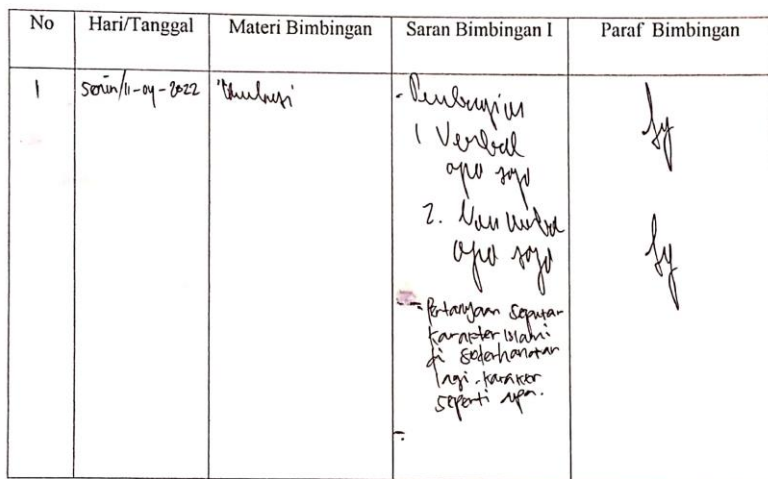 No Hari/Tanggal Materi Bimbingan Saran Bimbingan I Paraf Bimbingan
1 Senin/11-04-2022
- Pembagian
1 Verbal
apa saja
2. Non verbal
apa saja
- Pertanyaan seputar
karakter islami
di sederhanakan
lagi. karakter
seperti apa.